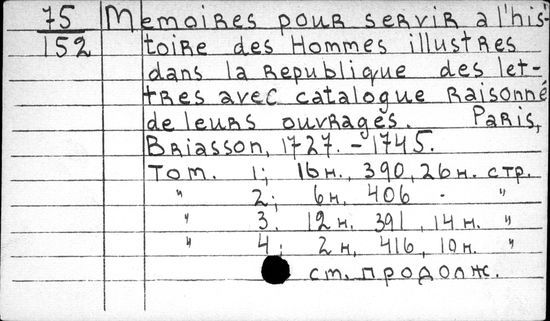 75
152
Memoires pour servir a l'his-
toire des Hommes illustres
dans la Republique des let-
tres avec catalogue Raisonné
de leurs ouvrages. Paris,
Briasson, 1727. - 1745.
Tom. 1; 16н., 390, 26н. стр.
" 2; 6н. 406 - "
" 3. 12н. 391, 14н. "
" 4; 2н, 416, 10н. "
см. продолж.